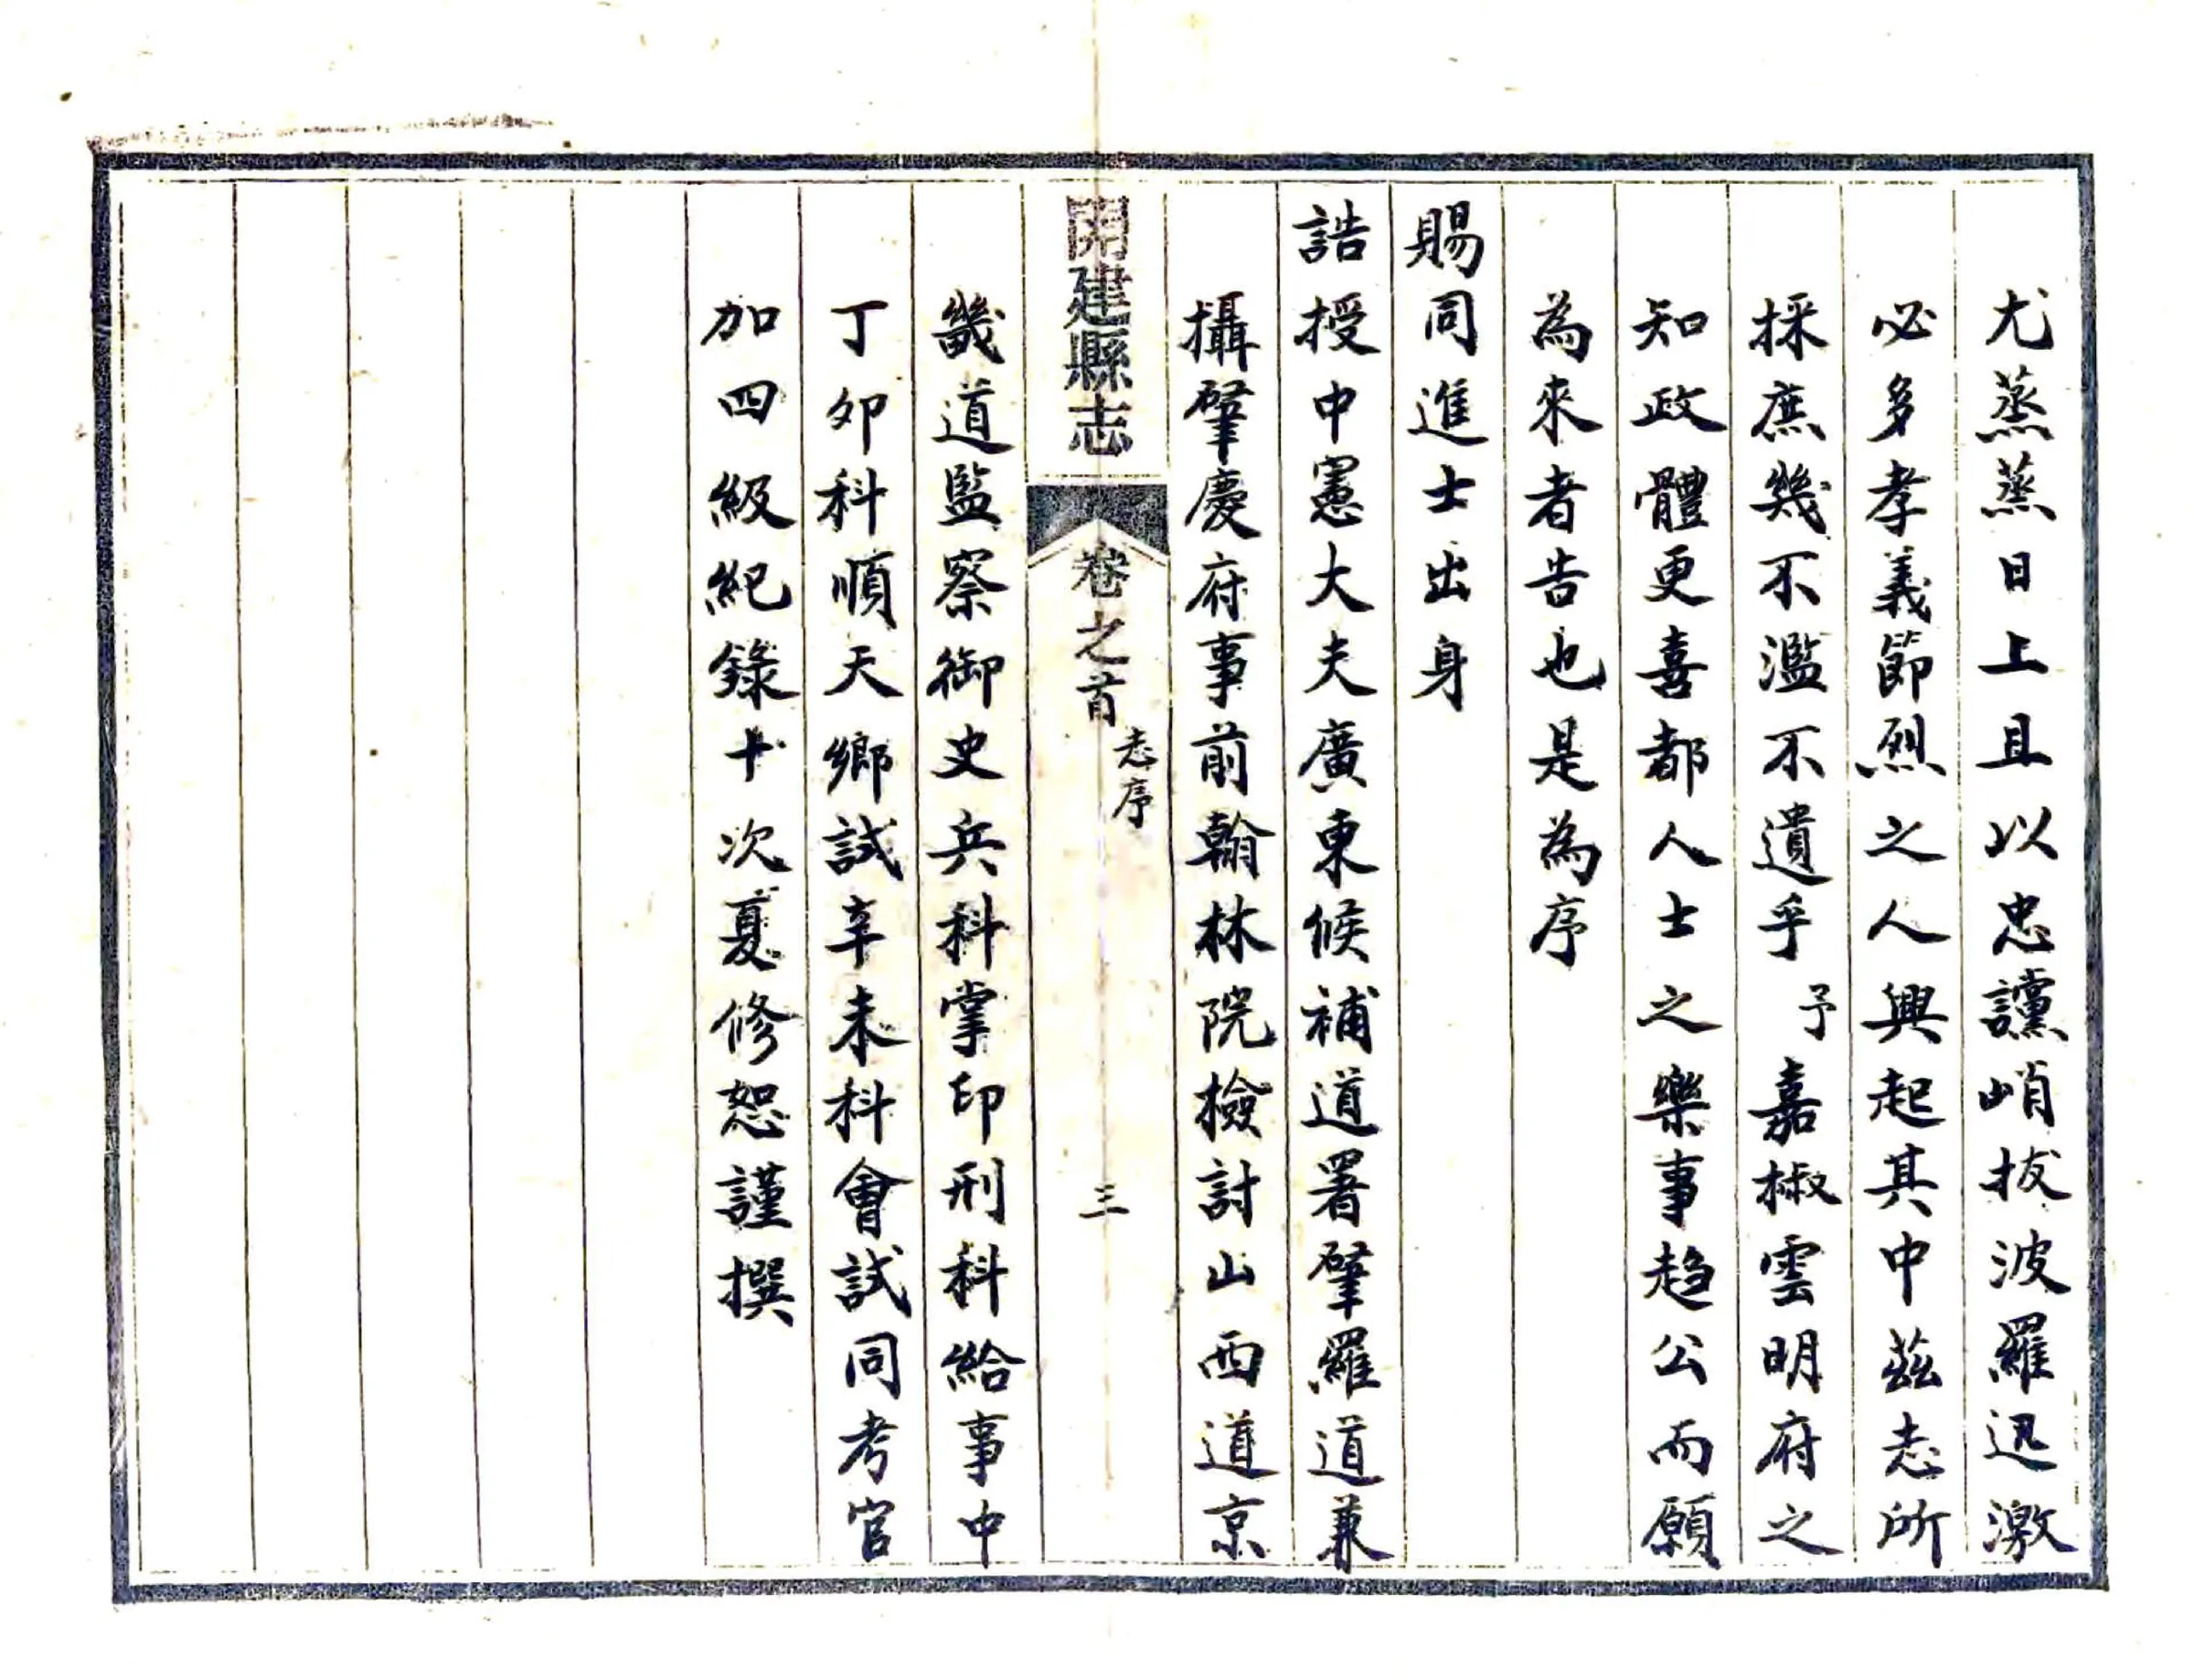 尤蒸蒸日上且以忠讜峭拔波羅迅激
必多孝義節烈之人興起其中茲志所
採庶幾不濫不遺乎予嘉椒雲明府之
知政體更喜都人士之樂事趨公而願
為來者告也是為序
賜同進士出身
誥授中憲大夫廣東候補道署肇羅道兼
攝肇慶府事前翰林院檢討山西道京
開建縣志
卷之首
志序
三
畿道監察御史兵科掌印刑科給事中
丁卯科順天鄉試辛未科會試同考官
加四級紀錄十次夏修恕謹撰